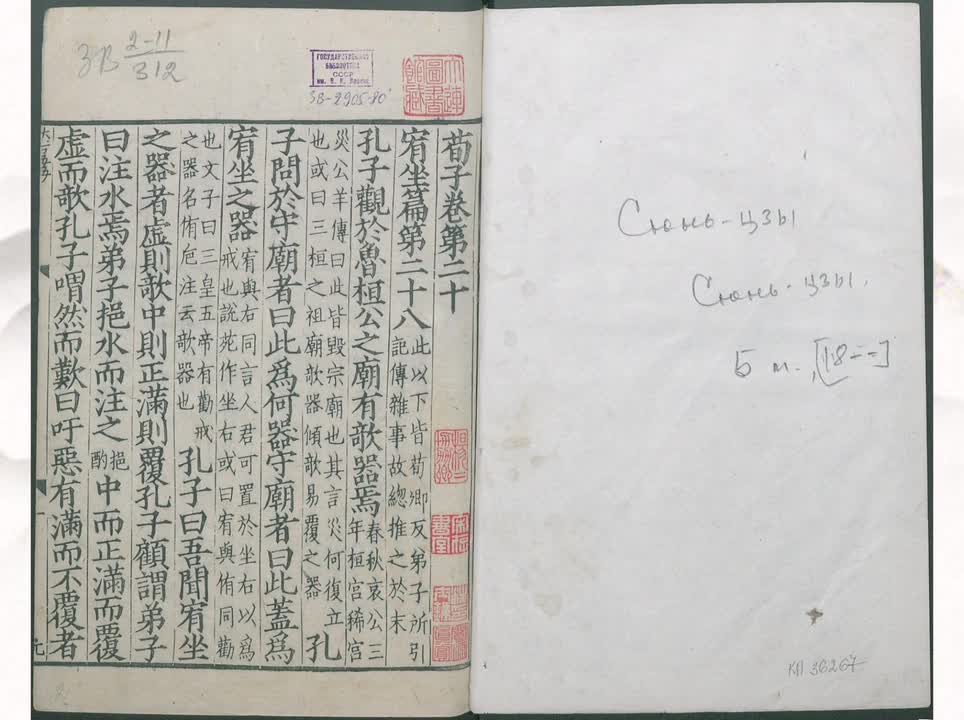 3В 2-11
312
ГОСУДАРСТВЕННАЯ
БИБЛИОТЕКА
СССР
им. В. И. Ленина
3В-2905-80
大連
圖書
館藏
荀子卷第二十
宥坐篇第二十八此以下皆荀卿及弟子所引
記傳雜事故總推之於末
孔子觀於魯桓公之廟有欹器焉春秋哀公三
年桓宮僖宮
災公羊傳曰此皆毀宗廟也其言災何復立
也或曰三桓之祖廟欹器傾欹易覆之器孔
子問於守廟者曰此爲何器守廟者曰此蓋爲
宥坐之器宥與右同言人君可置於坐右以爲
戒也說苑作坐右或曰宥與侑同勸
也文子曰三皇五帝有勸戒
之器名侑卮注云欹器也孔子曰吾聞宥坐
之器者虛則欹中則正滿則覆孔子顧謂弟子
曰注水焉弟子挹水而注之挹
酌中而正滿而覆
虛而欹孔子喟然而歎曰吁惡有滿而不覆者
Сюнь-цзы
Сюнь-цзы.
КП 36267